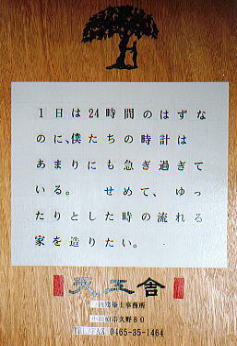 1日は24時間のはずな
のに、僕たちの時計は
あまりにも急ぎ過ぎて
いる。 せめて、ゆっ
たりとした時の流れる
家を造りたい。
工舎
築士事務所
久野80
TEL/FAX 0465-35-1464